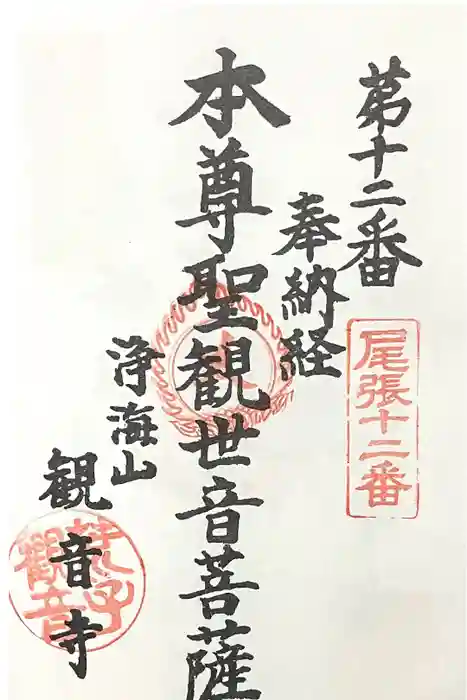 第十二番
尾張十二番
奉納経
本尊聖観世音菩薩
浄海山
観音寺
荒子
観音